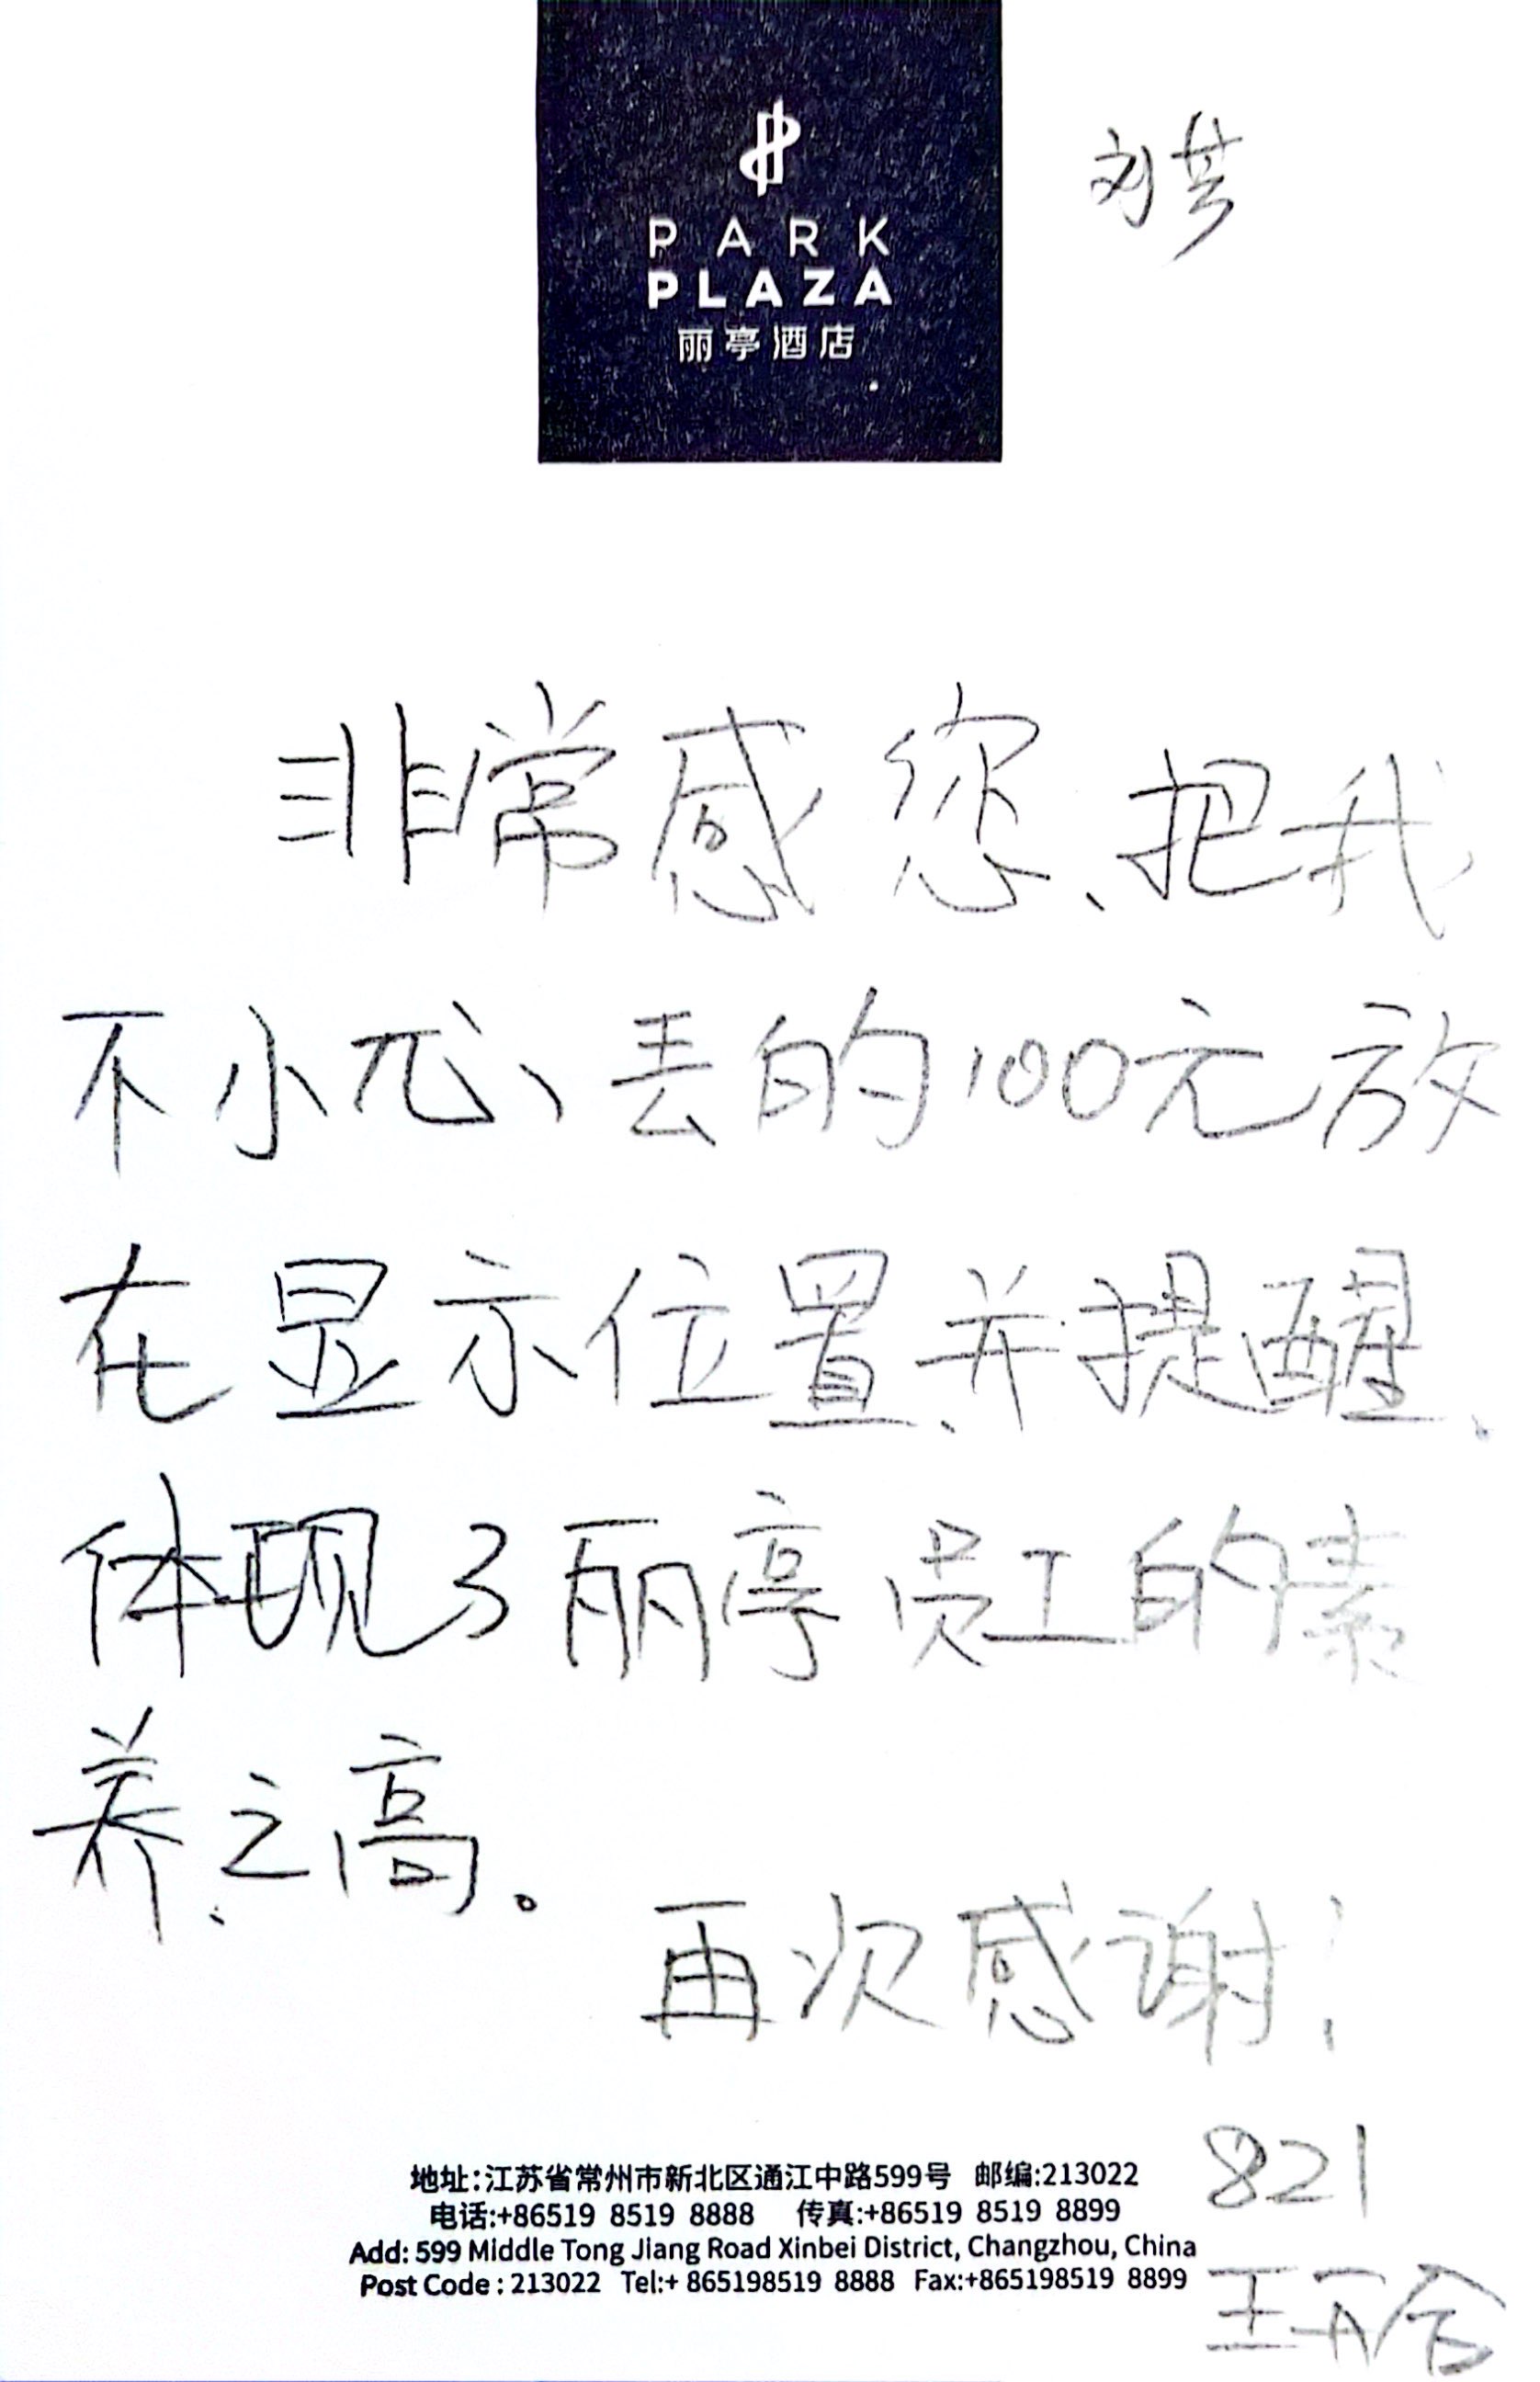 PARK
PLAZA
丽亭酒店
刘芸
非常感您、把我
不小心、丢的100元放
在显示位置、并提醒、
体现了丽亭员工的素
养、之高。
再次感谢!
821
地址:江苏省常州市新北区通江中路599号 邮编:213022
电话:+86519 8519 8888 传真:+86519 8519 8899
Add: 599 Middle Tong Jiang Road Xinbei District, Changzhou, China
Post Code : 213022 Tel:+ 865198519 8888 Fax:+865198519 8899